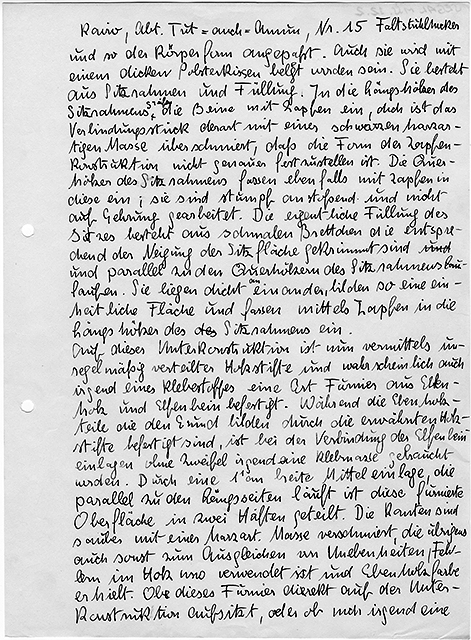 Kairo, Abt. Tut=auch=Amun, Nr. 15 Faltstuhlhocker
und so der Körperform angepaßt. Auch sie wird mit
einem dicken Polsterkissen belegt worden sein. Sie besteht
aus Sitzrahmen und Füllung. In die Längshölzer des
Sitzrahmens greifen die Beine mit Zapfen ein, doch ist das
Verbindungsstück derart mit einer schwarzen harzar-
tigen Masse überschmiert, daß die Form der Zapfen-
konstruktion nicht genauer festzustellen ist. Die Quer-
hölzer des Sitzrahmens fassen ebenfalls mit Zapfen in
diese ein; sie sind stumpf anstoßend und nicht
auf Gehrung gearbeitet. Die eigentliche Füllung des
Sitzes besteht aus schmalen Brettchen die entspre-
chend der Neigung der Sitzfläche gekrümmt sind und
und parallel zu den Querhölzern des Sitzrahmens
laufen. Sie liegen dicht an einander bilden so eine ein-
heitliche Fläche und fassen mittels Zapfen in die
Längshölzer des Sitzrahmens ein.
Auf dieser Unterkonstruktion ist nun vermittels un-
regelmäßig verteilter Holzstifte und wahrscheinlich auch
irgend eines Klebestoffes eine Art Furnier aus Eben-
holz und Elfenbein befestigt. Während die Ebenholz-
teile die den Grund bilden durch die erwähnten Holz-
stifte befestigt sind, ist bei der Verbindung der Elfenbein
einlagen ohne Zweifel irgendeine Klebmasse gebraucht
worden. Durch eine 1 cm breite Mitteleinlage, die
parallel zu den Längsseiten läuft ist diese furnierte
Oberfläche in zwei Hälften geteilt. Die Kanten sind
sauber mit einer Harzart. Masse verschmiert, die übrigens
auch sonst zum Ausgleichen von Unebenheiten, Feh-
lern im Holz usw verwendet ist und Ebenholzfarbe
erhielt. Ob dieses Furnier direkt auf der Unter-
konstruktion aufsitzt, oder ob noch irgend eine